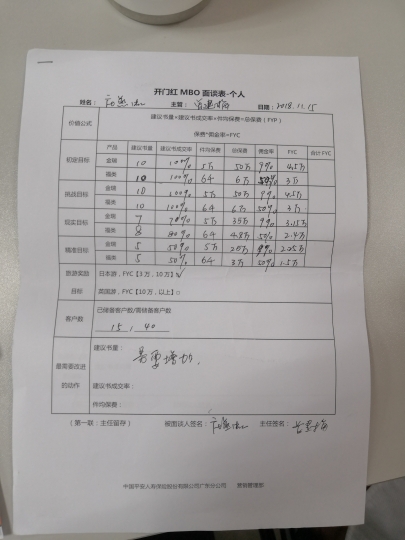 开门红 MBO 面谈表-个人
姓名： 主管： 日期：2018.11.15
价值公式 建议书量*建议书成交率*件均保费=总保费（FYP）
保费*佣金率=FYC
产品 建议书量 建议书成交率 件均保费 总保费 佣金率 FYC 合计 FYC
初定目标 金瑞 10 100% 5万 50万 9% 4.5万
福类 10 100% 6千 6万 50% 3万
挑战目标 金瑞 10 100% 5万 50万 9% 4.5万
福类 10 100% 6千 6万 50% 3万
现实目标 金瑞 7 70% 5万 35万 9% 3.15万
福类 8 80% 6千 4.8万 50% 2.4万
瞄准目标 金瑞 5 50% 5万 25万 9% 2.25万
福类 5 50% 6千 3万 50% 1.5万
旅游奖励目标 日本游，FYC【3万，10万】
英国游，FYC【10万，以上】○
客户数 已储备客户数/需储备客户数
15，40
最需要改进的动作 建议书量：
需要增加，
建议书成交率：
件均保费：
（第一联：主任留存） 被面谈人签名： 主任签名：
中国平安人寿保险股份有限公司广东分公司 营销管理部